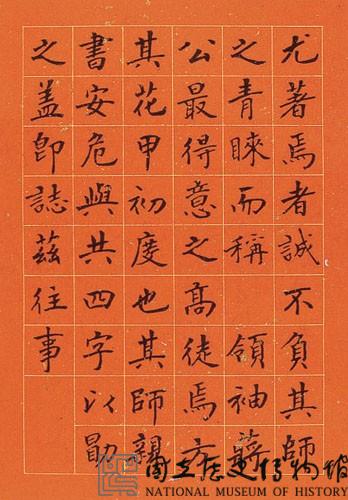 尤著焉者誠不負其師
之青睞而稱 領袖蔣
公最得意之高徒焉方
其花甲初度也其師親
書安危與共四字以勖
之蓋即誌茲往事
國立歷史博物館
NATIONAL MUSEUM OF HISTORY